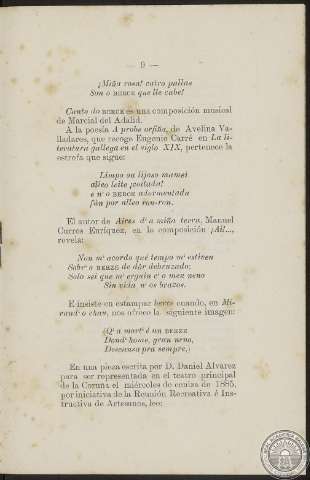 — 9 —
¡Miña rosa! catro pallas
Son o BERCE que lle cabe!
Canto do BERCE es una composición musical
de Marcial del Adalid.
A la poesía A probe orfiña, de Avelina Va-
lladares, que recoge Eugenio Carré en La li-
teratura gallega en el siglo XIX, pertenece la
estrofa que sigue:
Limpo ou lijoso mamei
alleo leite ¡coitada!
e n' o BERCE adormentada
fún por alleo ron-ron.
El autor de Aires d' a miña terra, Manuel
Curros Enríquez, en la composición ¡Ail...,
revela:
Non m' acordo qué tempo m' estiven
Sobr' o BERZE de dór debruzado;
Solo sei que m' erguin c' o meu neno
Sin vida n' os brazos.
E insiste en estampar berce cuando, en Mi-
rand' o chau, nos ofrece la siguiente imagen:
¿Q' a mort' é un BERZE
Dond' home, gran neno,
Descansa pra sempre,?
En una pieza escrita por D. Daniel Alvarez
para ser representada en el teatro principal
de la Coruña el miércoles de ceniza de 1885,
por iniciativa de la Reunión Recreativa é Ins-
tructiva de Artesanos, leo: